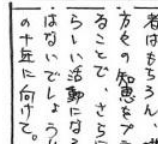 者はもちろん、
方々の知恵をプラ
ることで、さらに
らしい活動になる
はないでしょう
の十年に向けて。